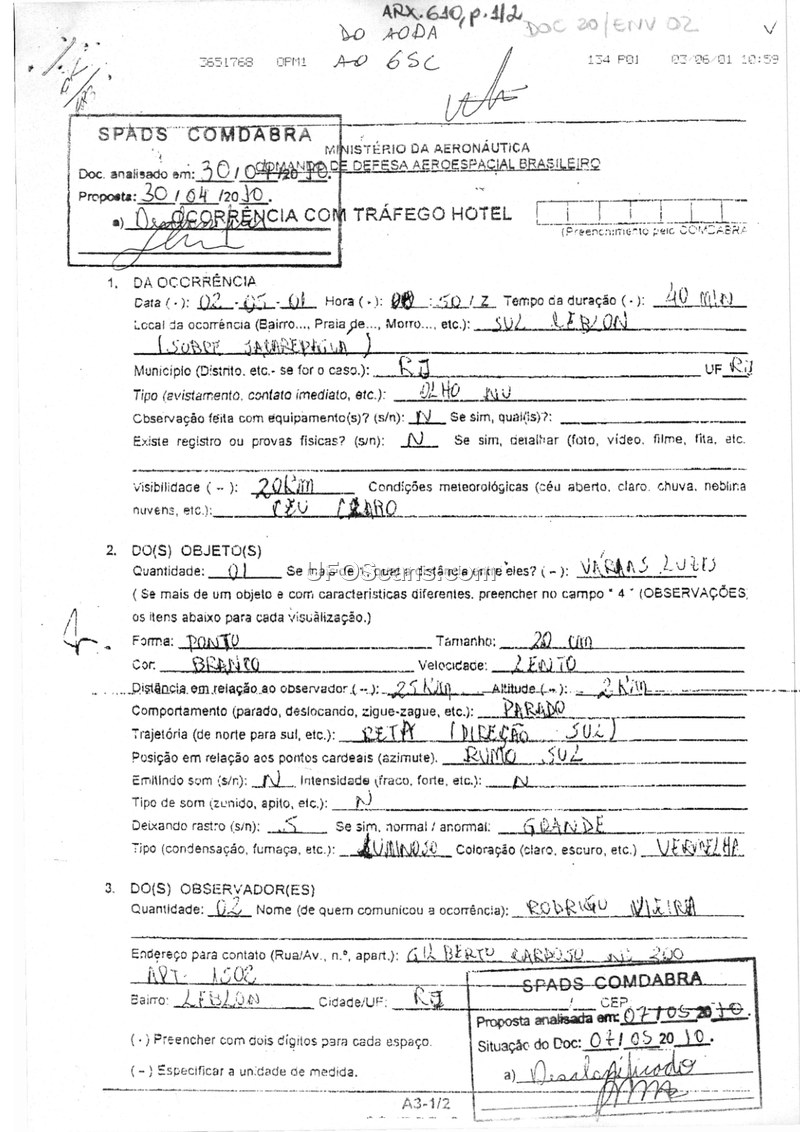 ARX. 610, p. 1/2
DO AODA
DOC 20/ENV 02
3651768 OPM1
AO 6SC
134 P01 03/06/01 10:59
SPADS COMDABRA
Doc. analisado em: 30/04/2010.
Proposta: 30/04/2010.
a)
MINISTÉRIO DA AERONÁUTICA
COMANDO DE DEFESA AEROESPACIAL BRASILEIRO
OCORRÊNCIA COM TRÁFEGO HOTEL
(Preenchimento pelo COMDABRA
1. DA OCORRÊNCIA
Data (·): 02-05-01 Hora (·): 00:50/Z Tempo da duração (-): 40 MIN
Local da ocorrência (Bairro..., Praia de..., Morro..., etc.): SUL LEBLON
(SOBRE JACAREPAGUÁ)
Município (Distrito, etc.- se for o caso.): RJ UF RJ
Tipo (avistamento, contato imediato, etc.): OLHO NU
Observação feita com equipamento(s)? (s/n): N Se sim, qual(is)?:
Existe registro ou provas físicas? (s/n): N Se sim, detalhar (foto, vídeo, filme, fita, etc.
Visibilidade (--): 20Km Condições meteorológicas (céu aberto, claro, chuva, neblina
nuvens, etc.): CEU CLARO
2. DO(S) OBJETO(S)
Quantidade: 01 Se mais de 1, qual a distância entre eles? (-): VÁRIAS LUZES
UFOScans.com
(Se mais de um objeto e com características diferentes, preencher no campo "4" (OBSERVAÇÕES,
os itens abaixo para cada visualização.)
Forma: PONTO Tamanho: 20 cm
Cor: BRANCO Velocidade: LENTO
Distância em relação ao observador (--): 25Km Altitude (--): 2Km
Comportamento (parado, deslocando, zigue-zague, etc.): PARADO
Trajetória (de norte para sul, etc.): RETA (DIREÇÃO SUL)
Posição em relação aos pontos cardeais (azimute). RUMO SUL
Emitindo som (s/n): N Intensidade (fraco, forte, etc.): N
Tipo de som (zunido, apito, etc.): N
Deixando rastro (s/n): S Se sim, normal / anormal: GRANDE
Tipo (condensação, fumaça, etc.): LUMINOSO Coloração (claro, escuro, etc.) VERMELHA
3. DO(S) OBSERVADOR(ES)
Quantidade: 02 Nome (de quem comunicou a ocorrência): RODRIGO VIEIRA
Endereço para contato (Rua/Av., n.º, apart.): GILBERTO CARDOSO Nº 200
APT. 1502
Bairro: LEBLON Cidade/UF: RJ CEP
(·) Preencher com dois dígitos para cada espaço.
(-) Especificar a unidade de medida.
SPADS COMDABRA
Proposta analisada em: 07/05 2010.
Situação do Doc: 07/05 2010.
a) Desclassificado
A3-1/2